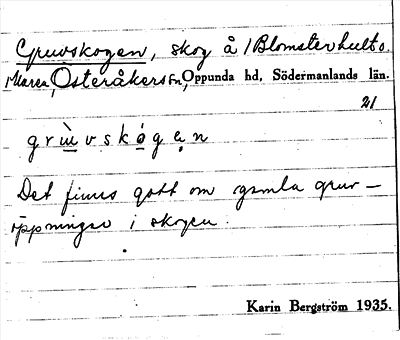 Gruvskogen, skog å Blomsterhult o.
Marea, Österåkers sn, Oppunda hd, Södermanlands län.
21
gru̱̇vskó̱gẹn
Det finns gott om gamla gruv-
öppningar i skogen.
Karin Bergström 1935.